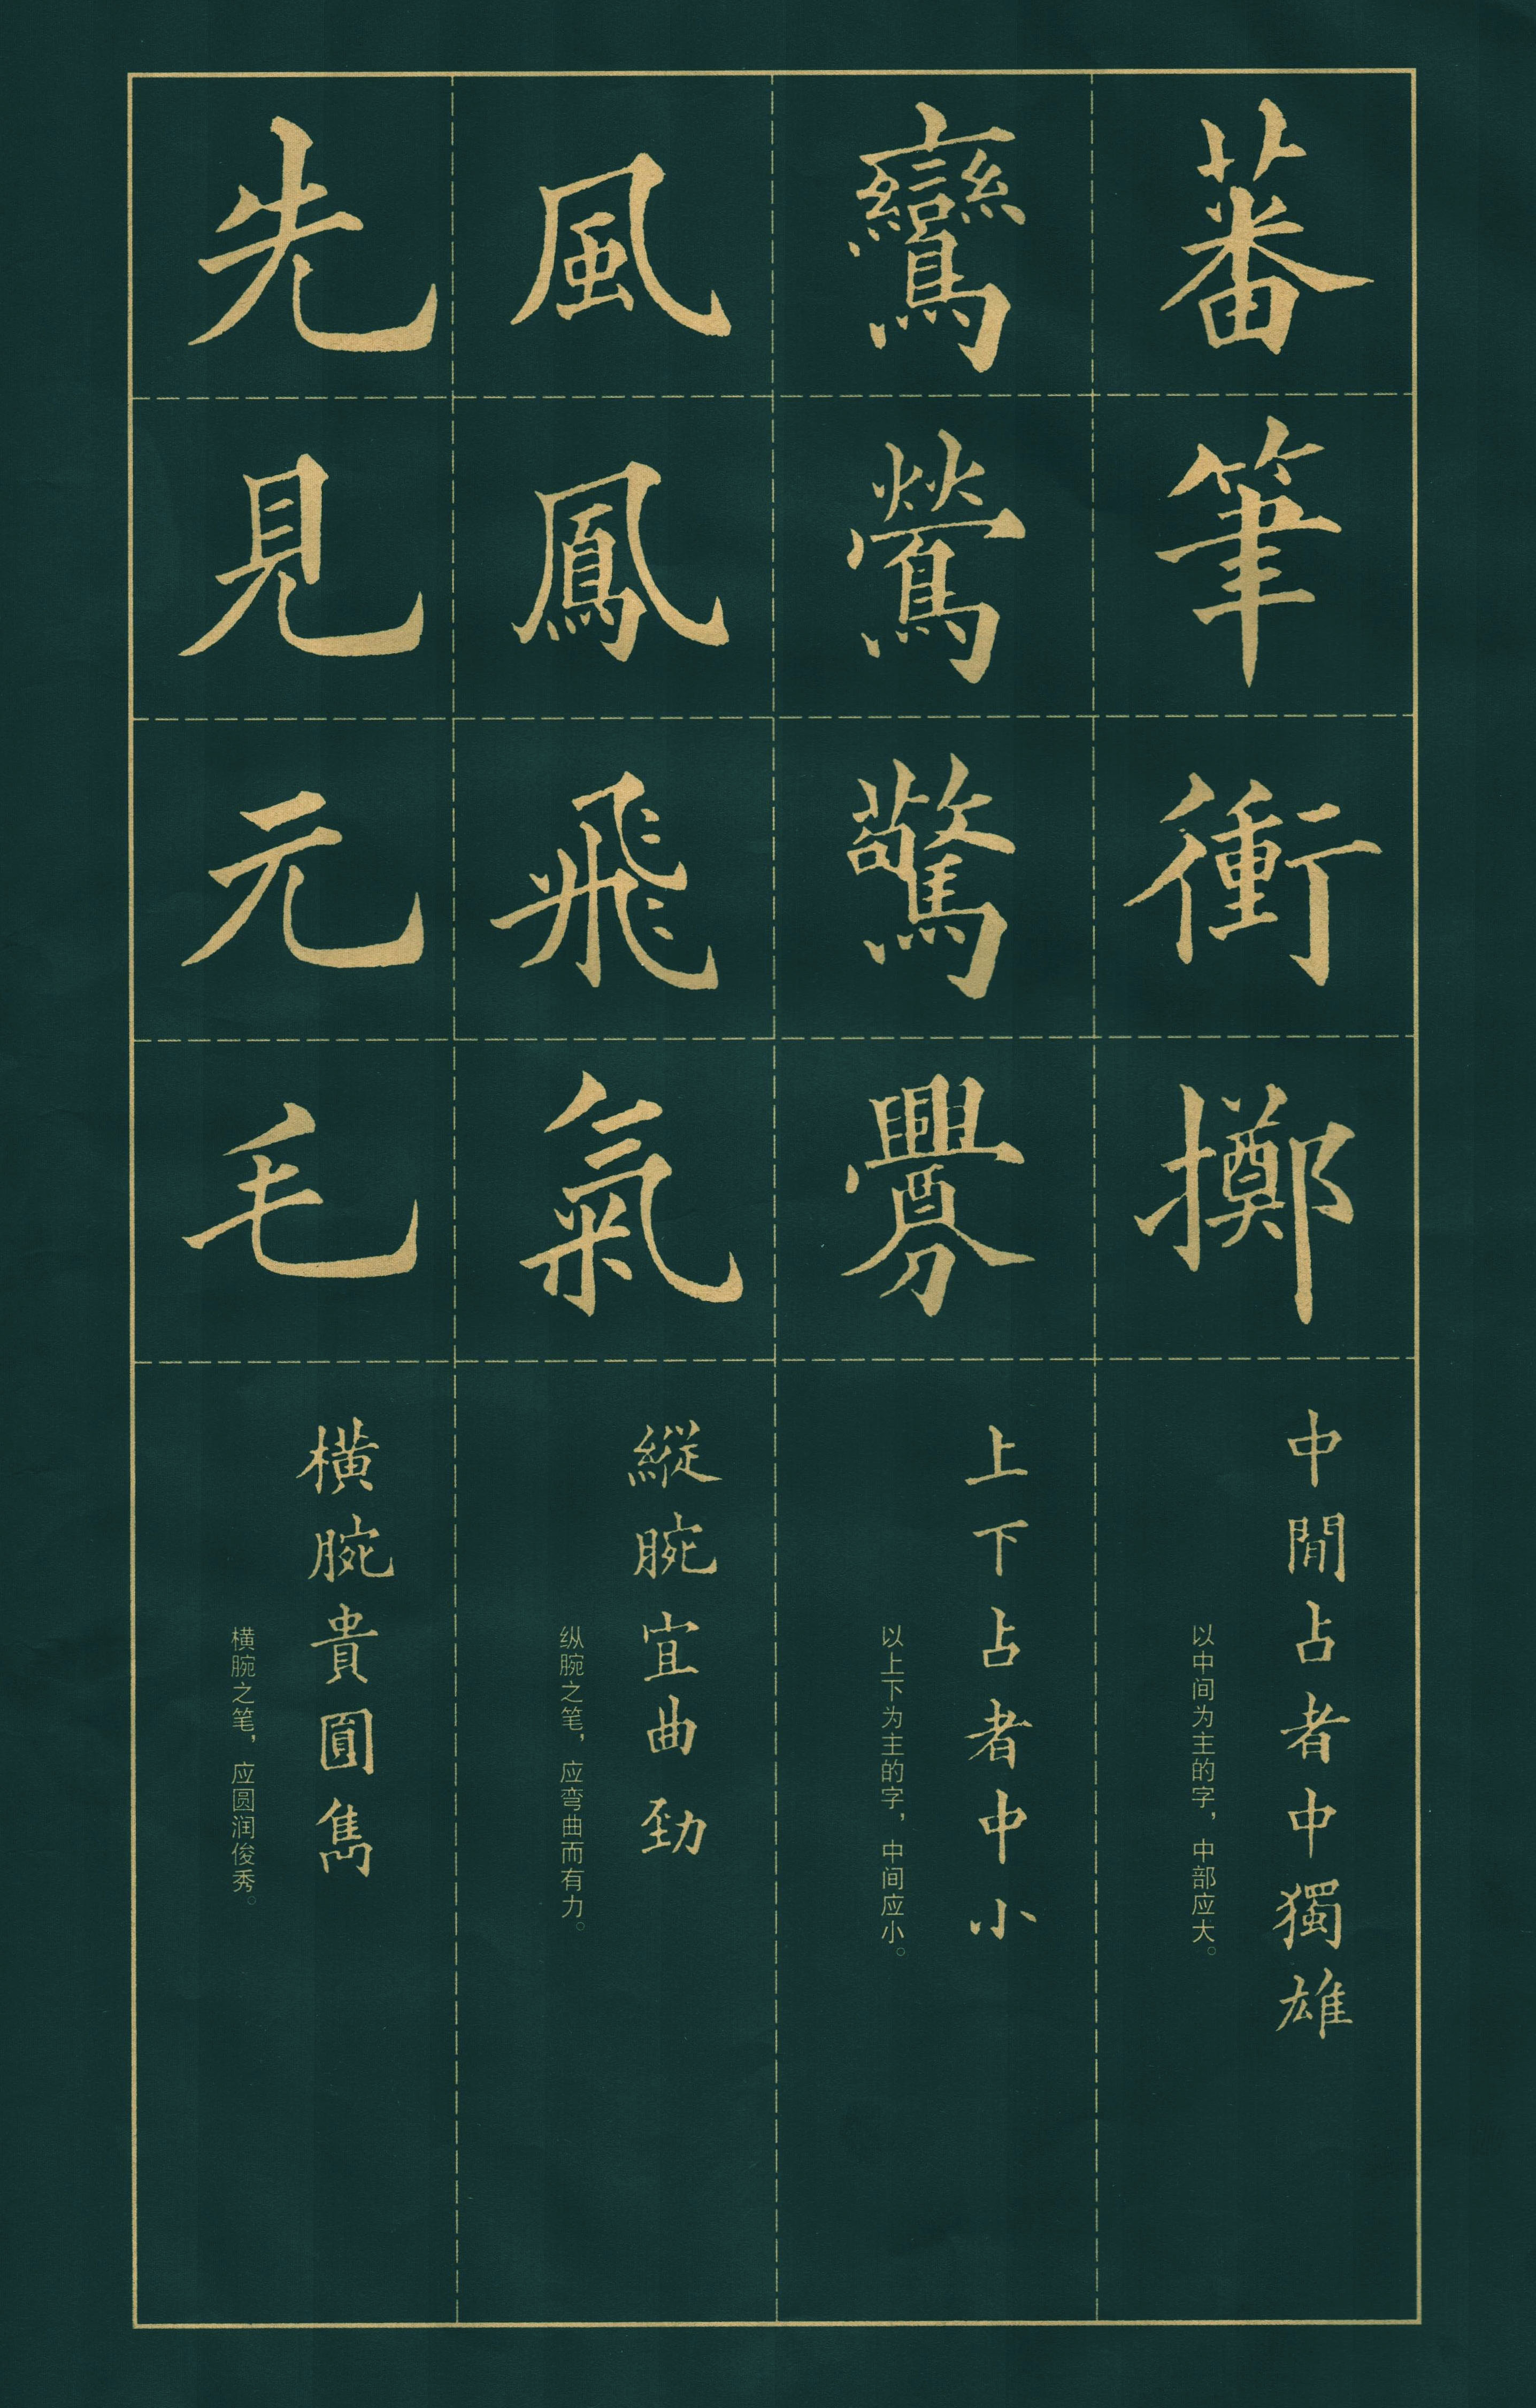 蕃筆衝擲
中間占者中獨雄
以中间为主的字，中部应大。
鸞鶯驚釁
上下占者中小
以上下为主的字，中间应小。
風鳳飛氣
縱腕宜曲勁
纵腕之笔，应弯曲而有力。
先見元毛
橫腕貴圓雋
横腕之笔，应圆润俊秀。